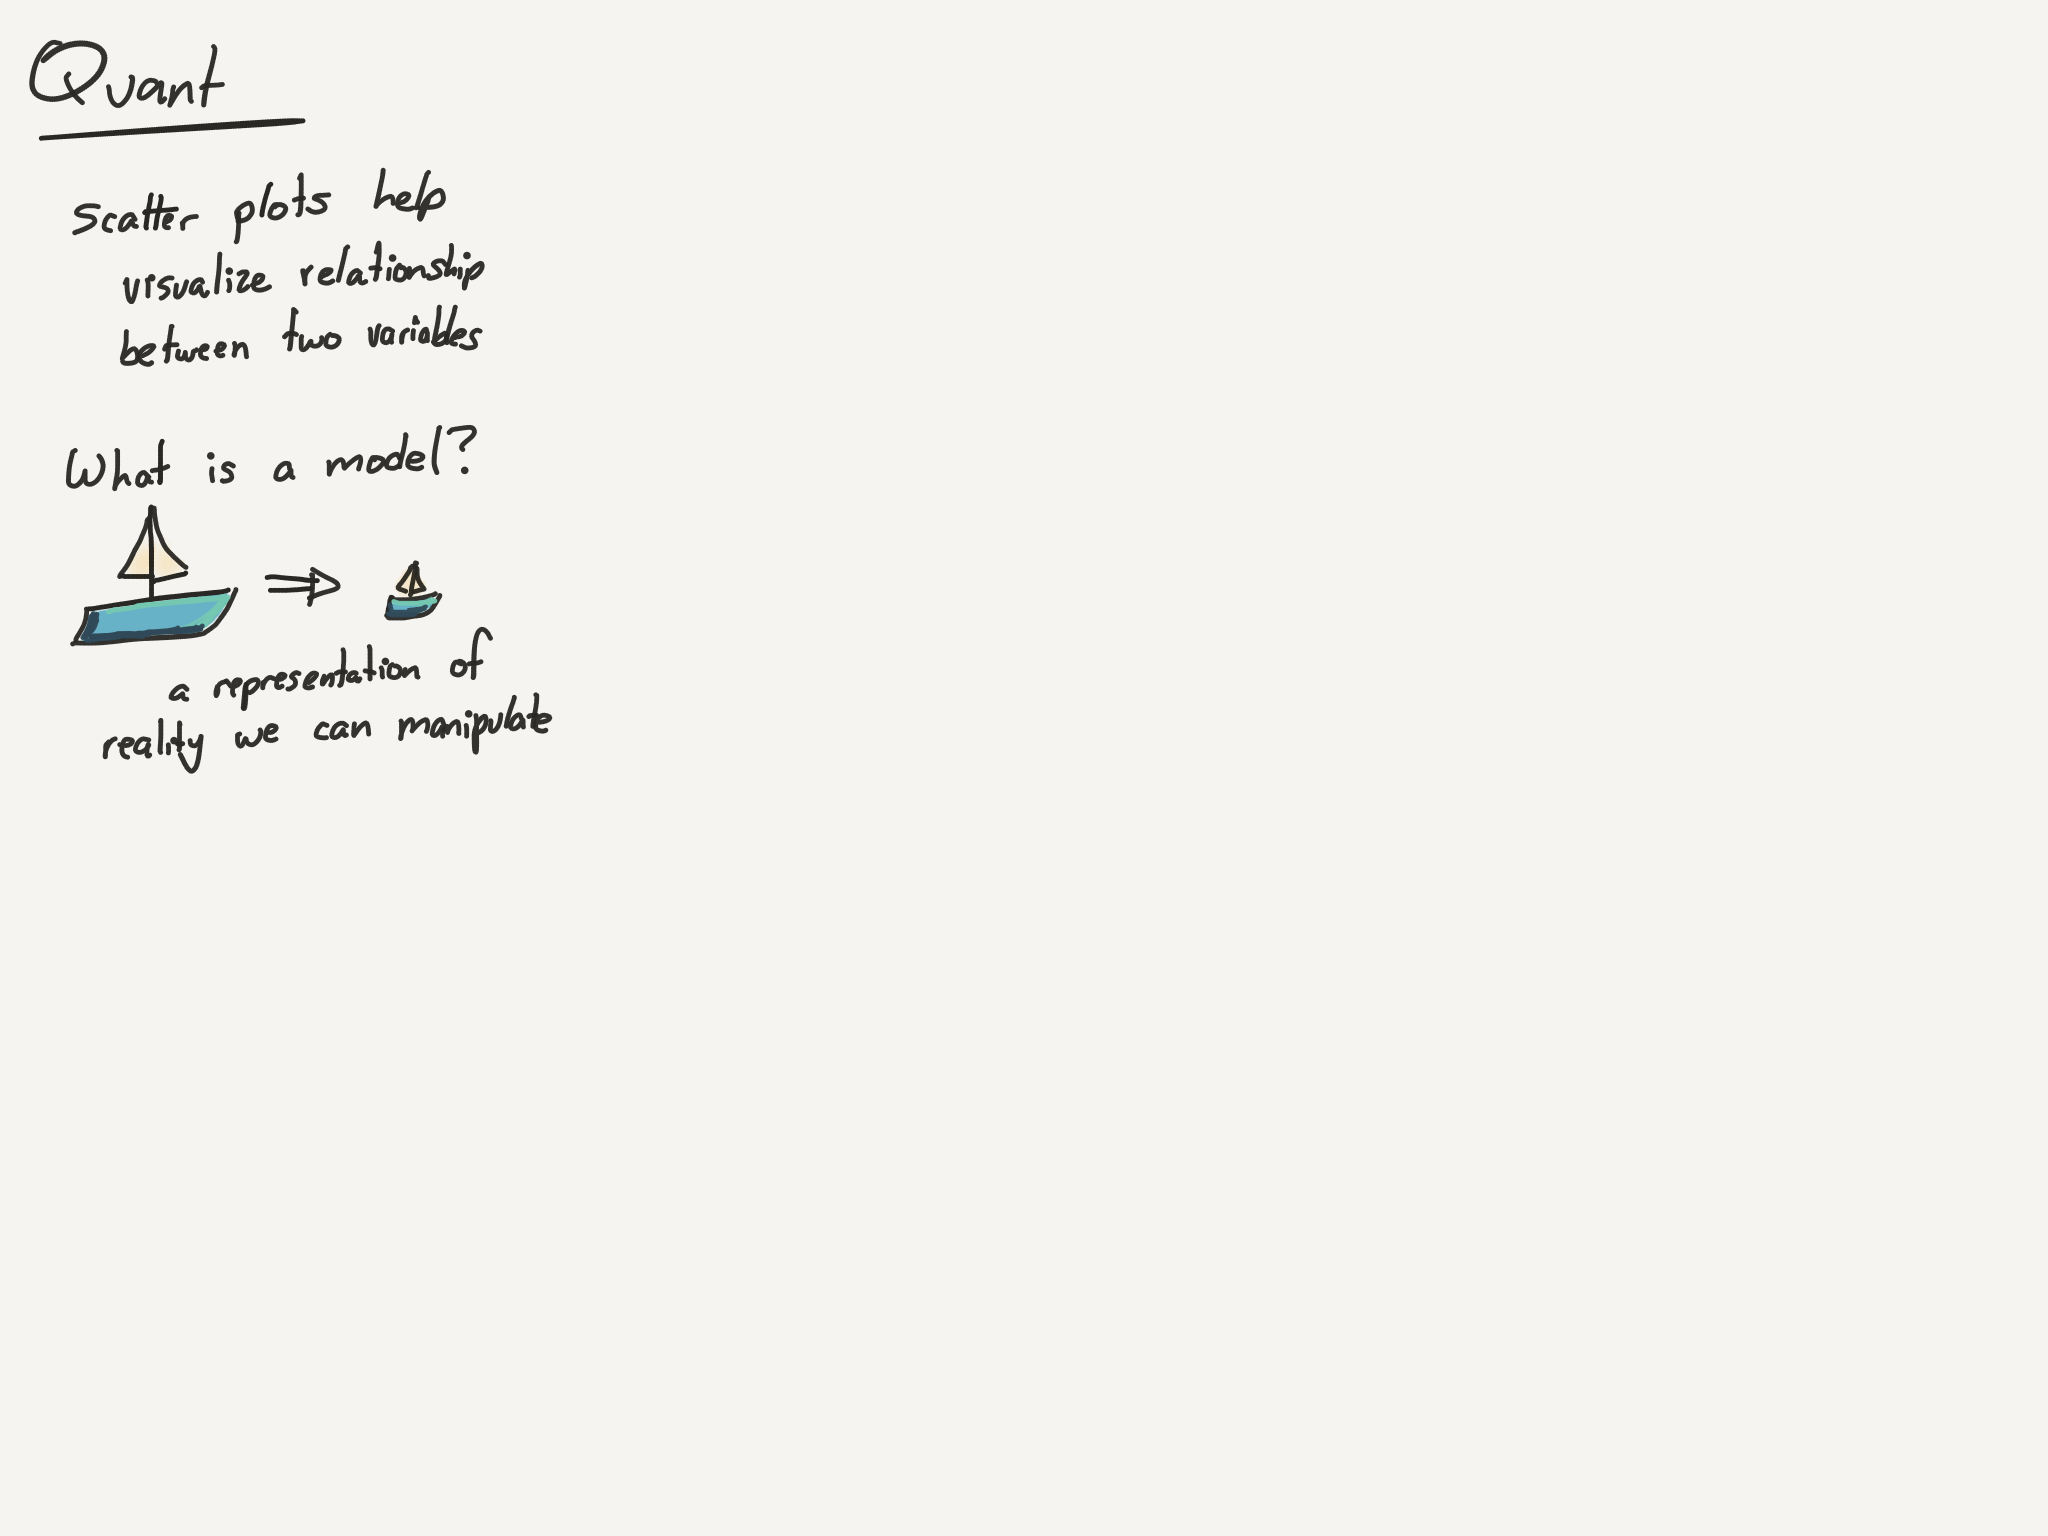 Quant
Scatter plots help
visualize relationship
between two variables
What is a model?
a representation of
reality we can manipulate